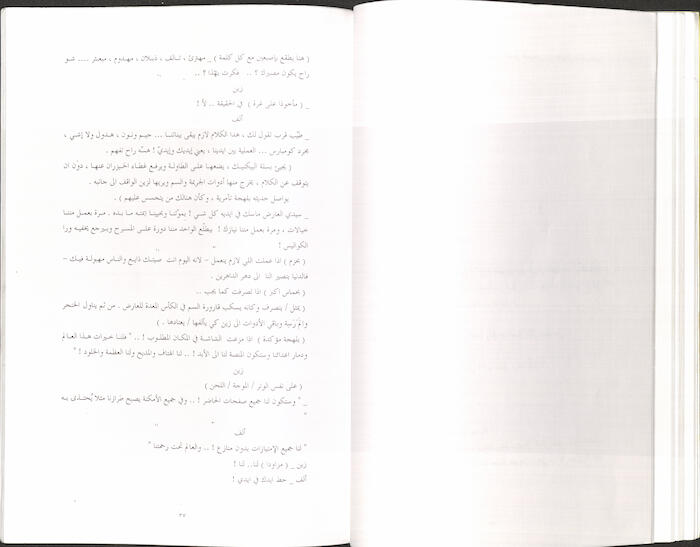 ( هنا يطقع بإصبعين مع كل كلمة ) _ مهترئ ، تالف ، ذبلان ، مهدوم ، مبعثر .... شو
راح يكون مصيرك ؟ .. فكرت بهذا ! ..
زين
_ ( مأخوذا على غرة ) في الحقيقة .. لأ !
ألف
_ طيّب قرب تقول لك ، هذا الكلام لازم يبقى بيناتنا ... جيم ونون ، هدول ولا إشي ،
مجرد كومبارس ... العملية بين ايدينا ، يعني إيديك وإيديّ ! هسّه راح تفهم .
( يجيئ بسلة البيكنيك ، يضعها على الطاولة ويرفع غطاء الخيزران عنها ، دون ان
يتوقف عن الكلام ، يخرج منها أدوات الجريمة والسم ويريها لزين الواقف الى جانبه .
يواصل حديثه بلهجة تآمرية ، وكأن هنالك من يتحمس عليهم ) .
_ سيدي العارض ماسك في ايديه كل شي ! يموّتنا ويحيينا إمته ما بده . مرة بعمل مننا
خيالات ، ومرة بعمل مننا نيازك ! بيطلّع الواحد مننا دورة على المسرح وبيرجع يخفيه ورا
الكواليس !
( بحزم ) اذا عملت اللي لازم ينعمل – لانه اليوم انت صيتك ذايع والناس مهبولة فيك –
فالدنيا بتصير النا الى دهر الداهرين .
( بحماس اكبر ) اذا تصرفت كما يجب ..
( يمثل / يتصرف وكأنه يسكب قارورة السم في الكأس المعدة للعارض . من ثم يناول الخنجر
والمرَسة وباقي الأدوات الى زين كي يألفها / يعتادها . )
( بلهجة مؤكدة ) اذا مزعت الشاشة في المكان المطلوب ! .. " فلنا خيرات هذا العالم
ودمار اعدائنا وستكون المنصة لنا الى الأبد ! .. لنا الهتاف والمديح ولنا العظمة والخلود ! "
زين
( على نفس الوتر / الموجة / اللحن )
_ " وستكون لنا جميع صفحات الحاضر ! .. وفي جميع الأمكنة يصبح طرازنا مثلا يُحتذى به
"
ألف
" لنا جميع الإمتيازات بدون منازع ! .. والعالم تحت رحمتنا "
زين _ ( مراودا ) لنا .. لنا !
ألف _ حط ايدك في ايدي !
٣٥